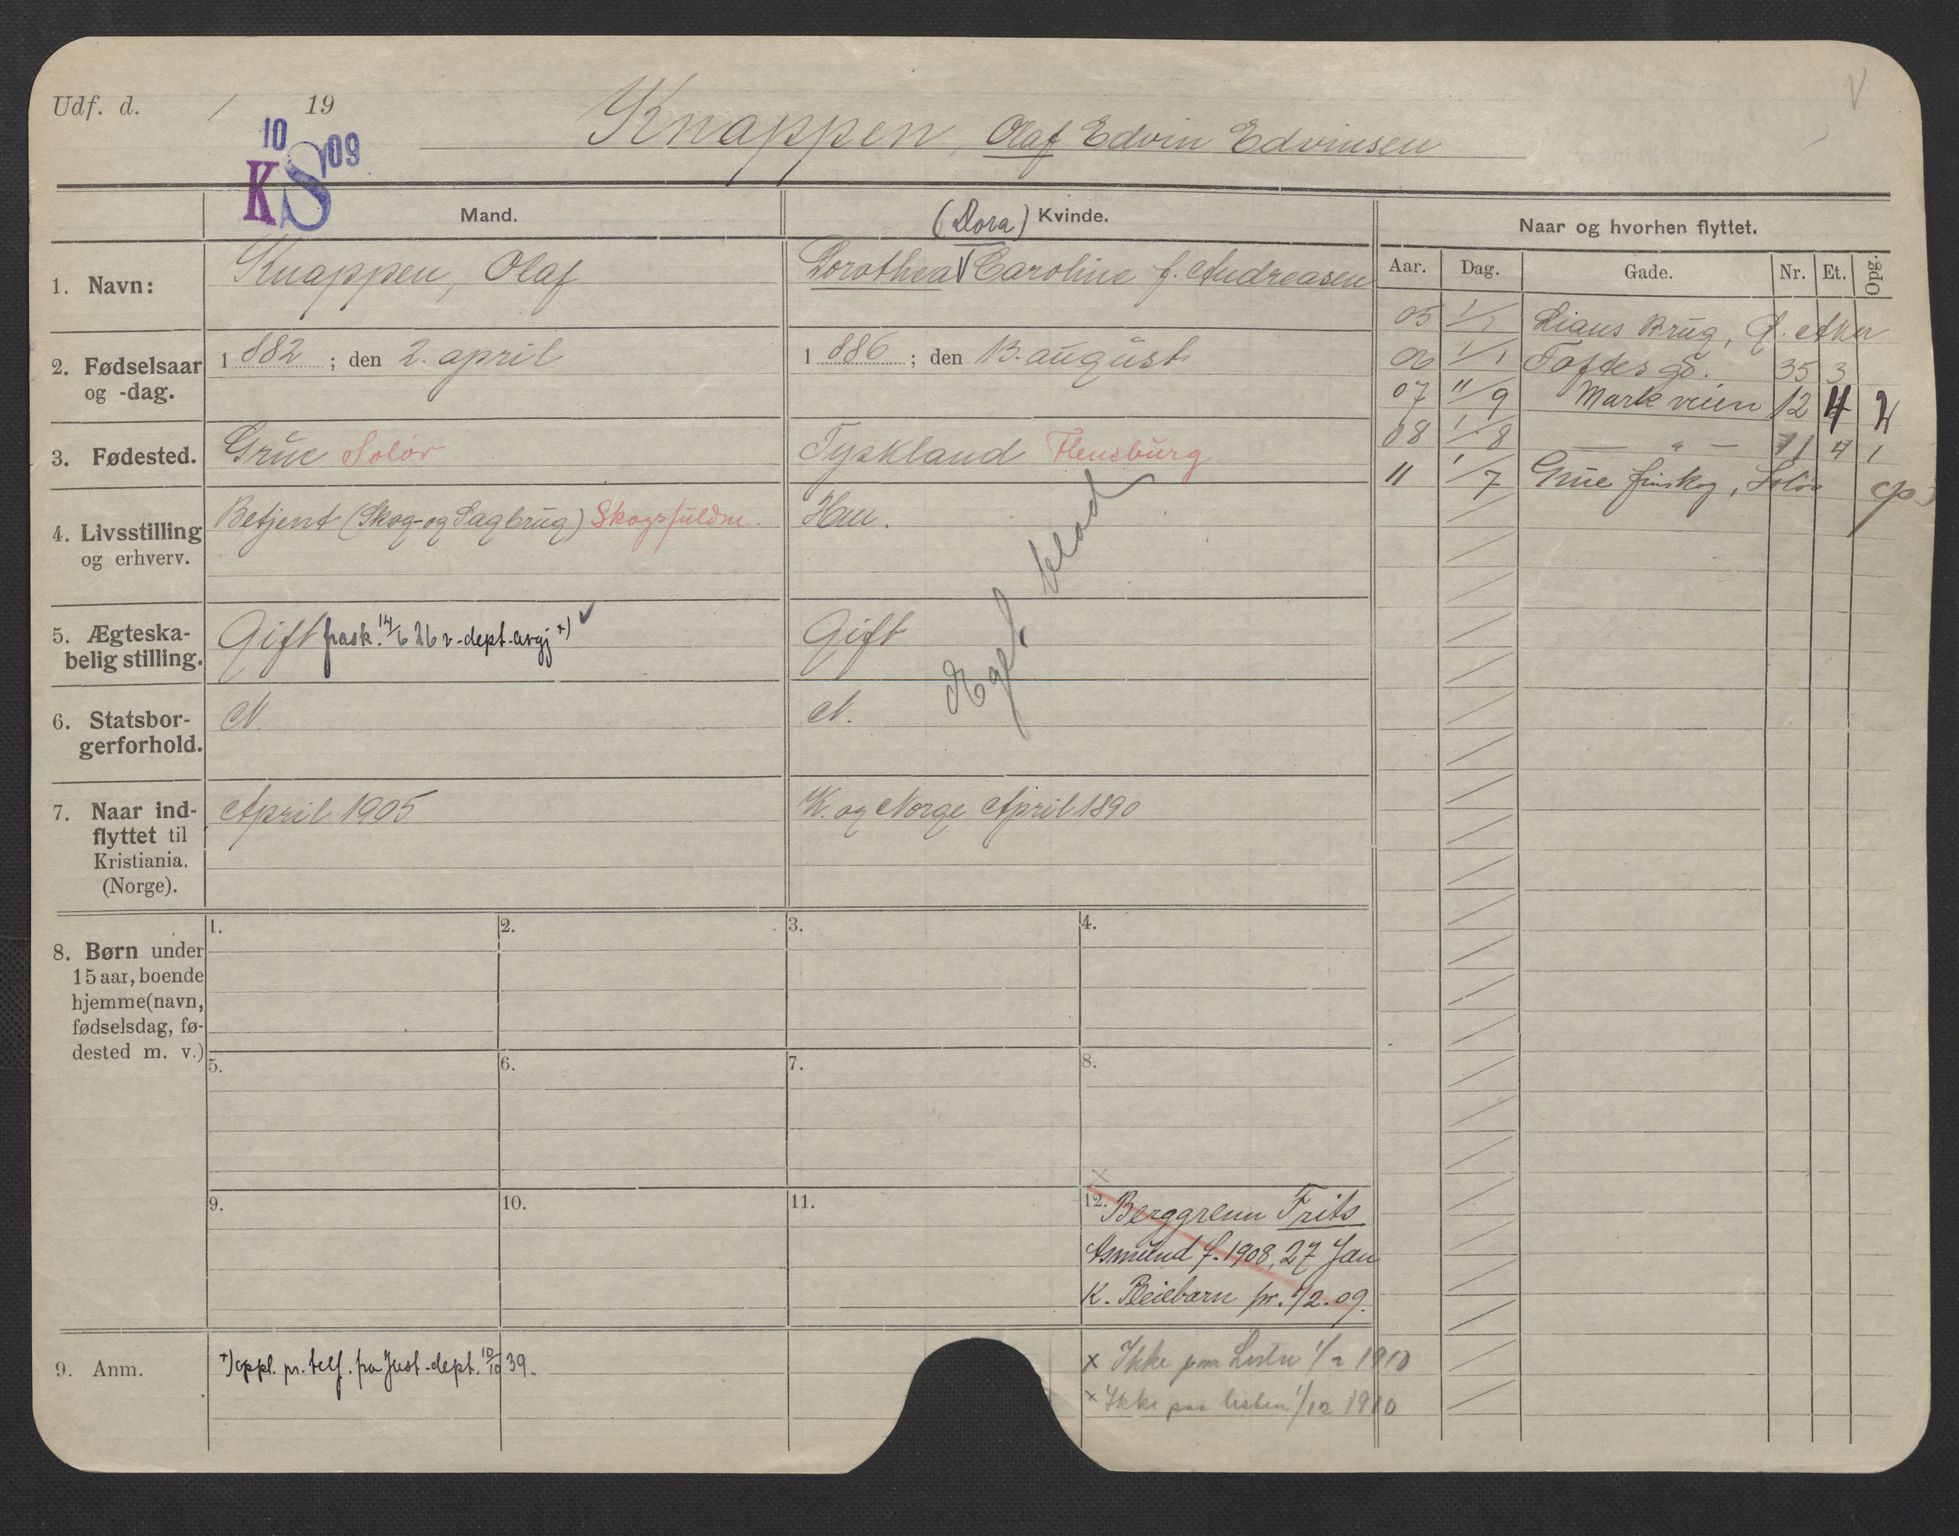 Udf. d. / 19
Knappen, Olaf Edvin Edvinsen
10 09
KS
Mand.
(Dora) Kvinde.
Naar og hvorhen flyttet.
1. Navn:
Knappen, Olaf
Dorothea V Caroline f. Andreasen
Aar. Dag. Gade. Nr. Et. Opg.
05 1/7 Lians Brug, Ø. Aker
06 1/1 Toftes gd. 35 3
07 11/9 Markveien 12 4 2
08 1/8 — " — 11 4 1
11 1/7 Grue finskog, Solør
2. Fødselsaar
og -dag.
1882 ; den 2. april
1886 ; den 13. august
3. Fødested.
Grue Solør
Tyskland Flensburg
4. Livsstilling
og erhverv.
Betjent (Skog- og Sagbrug) Skogsfuldm.
Hm.
Eget blad
5. Ægteska-
belig stilling.
Gift frask. 14/6 26 v-dept. avgj +) ✓
Gift
6. Statsbor-
gerforhold.
N.
N.
7. Naar ind-
flyttet til
Kristiania.
(Norge).
April 1905
K. og Norge April 1890
8. Børn under
15 aar, boende
hjemme (navn,
fødselsdag, fø-
dested m. v.)
1. 2. 3. 4.
5. 6. 7. 8.
9. 10. 11. 12.
x
Berggrenn Frits
Asmund f. 1908, 27 Jan
K. Pleiebarn pr. 1/2.09.
9. Anm.
+) oppl. pr. telf. fra Just-dept. 10/10 39.
x Ikke paa Listen 1/2 1910
x Ikke paa listen 1/12 1910